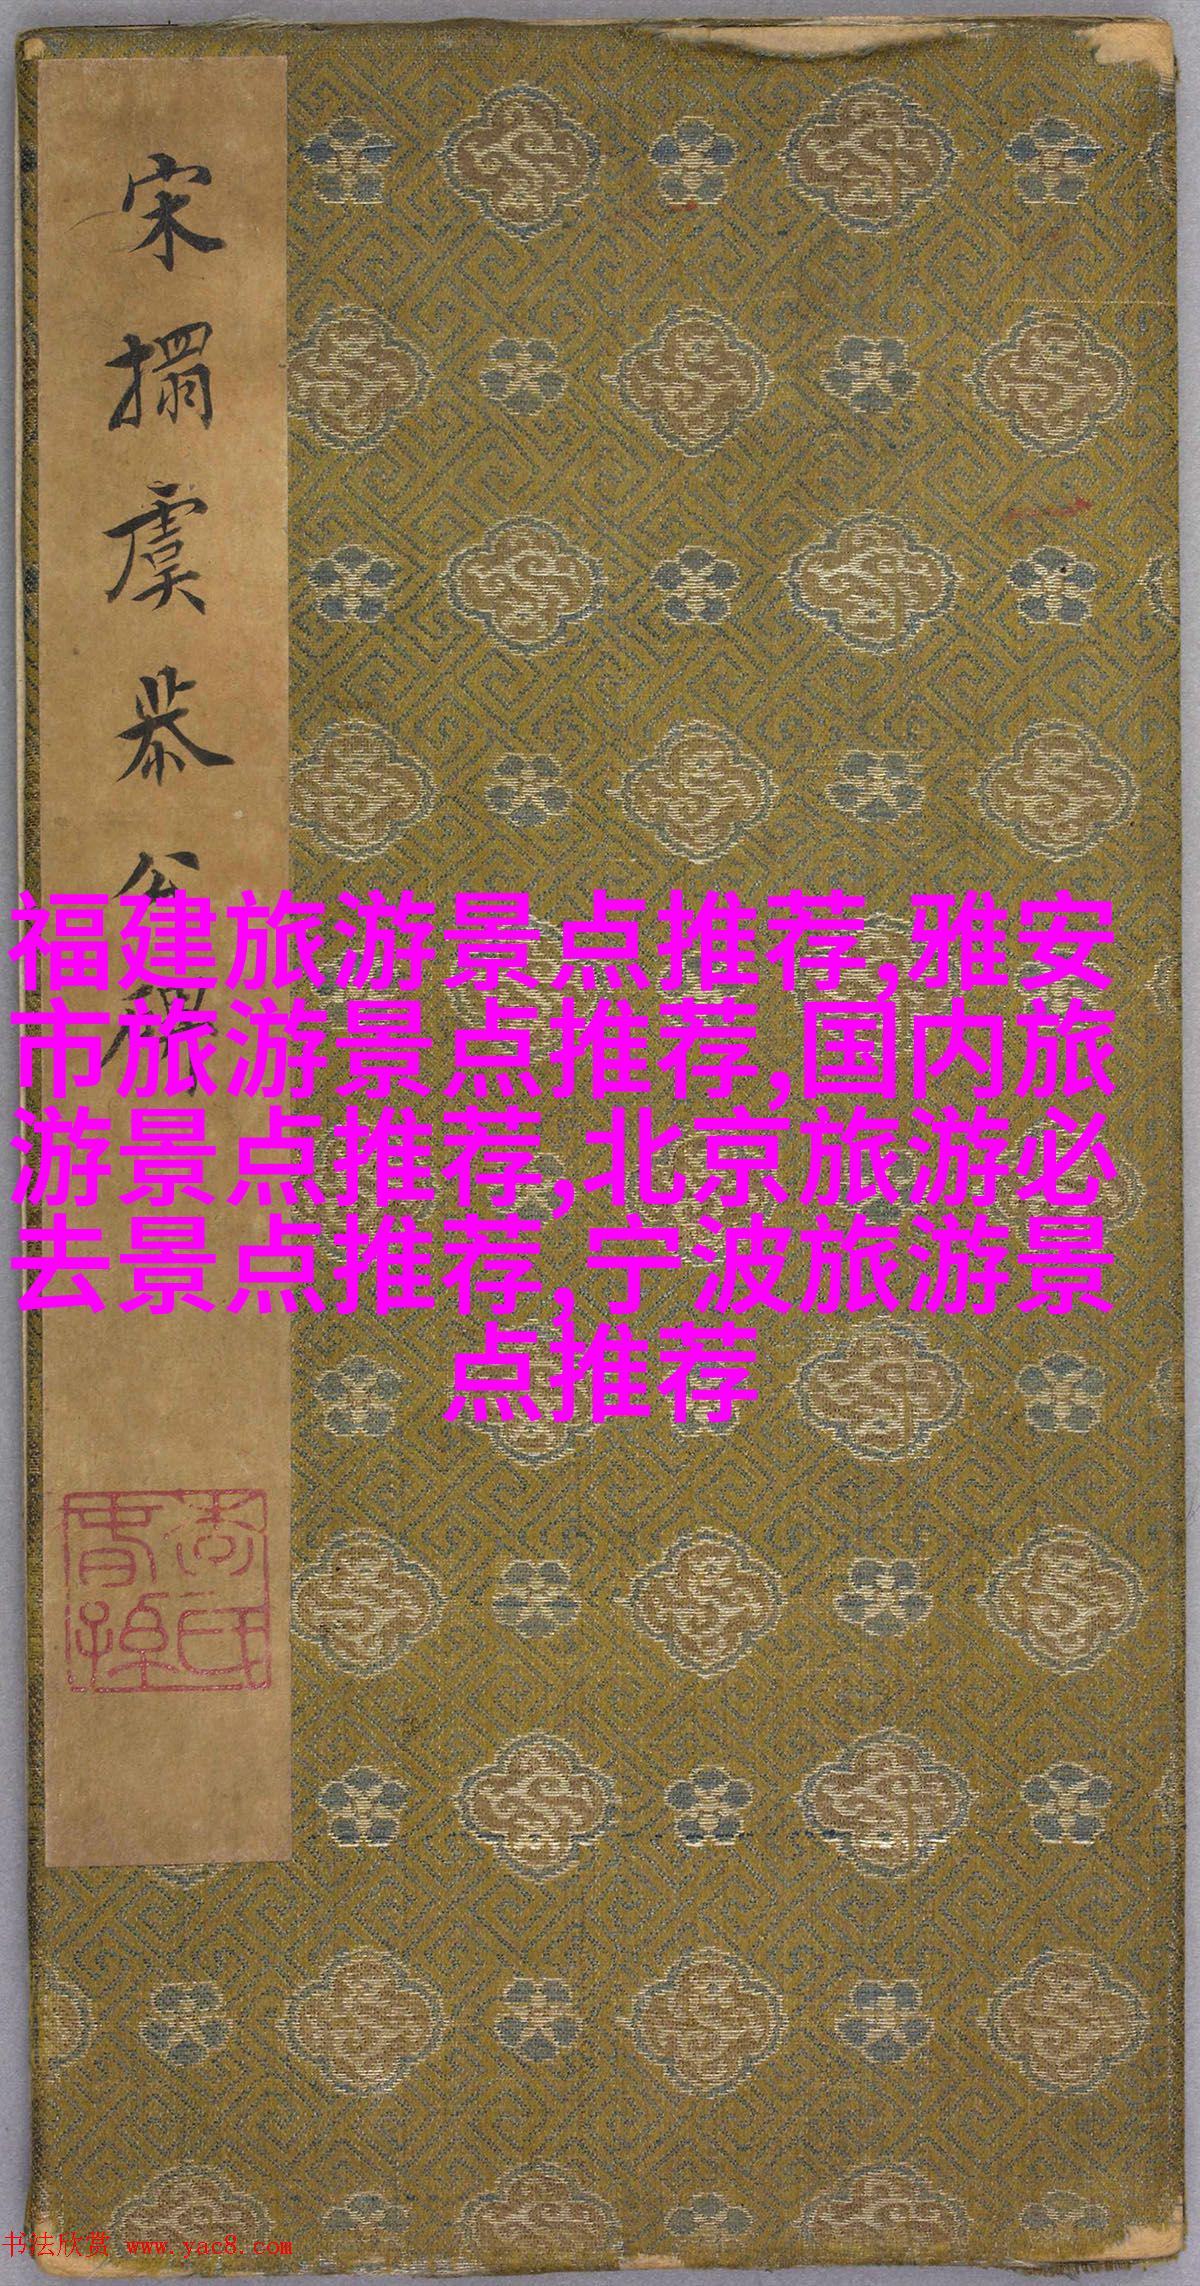 宋搨虞恭公碑
福建旅游景点推荐,雅安
市旅游景点推荐,国内旅
游景点推荐,北京旅游必
去景点推荐,宁波旅游景
点推荐
书法欣赏 www.yac8.com